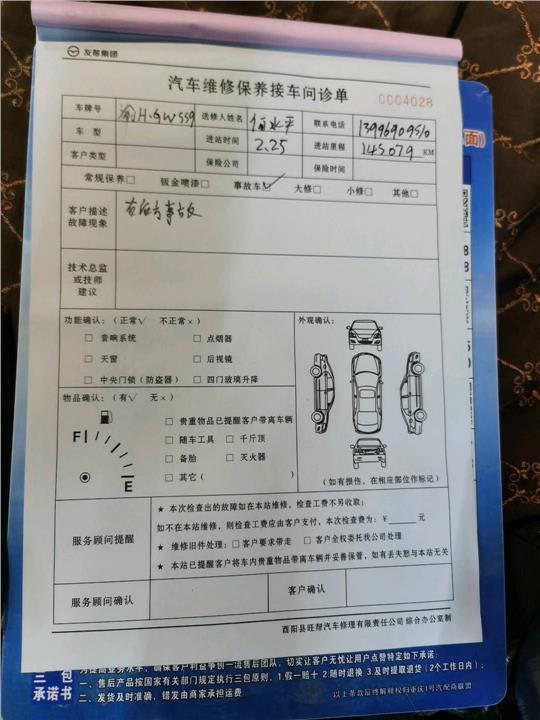 友帮集团
汽车维修保养接车问诊单
0004028
车牌号 渝H·GW559 送修人姓名 联系电话 13996909510
车 型 进站时间 2.25 进站里程 145079 KM
客户类型 保险公司 保险时间
常规保养□ 钣金喷漆□ 事故车☑ 大修□ 小修□ 其他□
客户描述
故障现象
技术总监
或技师
建议
功能确认：（正常√ 不正常×） 外观确认：
□ 音响系统 □ 点烟器
□ 天窗 □ 后视镜
□ 中央门锁（防盗器） □ 四门玻璃升降
物品确认：（有√ 无×）
□ 贵重物品已提醒客户带离车辆
□ 随车工具 □ 千斤顶
□ 备胎 □ 灭火器
□ 其它（ ）
F
E
（如有损伤，在相应部位作标记）
服务顾问提醒
★ 本次检查出的故障如在本站维修，检查工费不另收取；
如不在本站维修，则检查工费应由客户支付，本次检查费为：￥______元
★ 维修旧件处理：□ 客户要求带走 □ 客户全权委托我公司处理
★ 本站已提醒客户将车内贵重物品带离车辆并妥善保管，如有丢失恕与本站无关
服务顾问确认 客户确认
酉阳县旺帮汽车修理有限责任公司 综合办公室制
面）
三 包
承诺书
为提高业务水平，确保客户利益争创一流售后团队，切实让客户无忧让用户点赞特定如下承诺：
一、售后产品按国家有关部门规定执行三包原则、1.假一赔十 2:随时退换 3.及时提取退货（2个工作日内）；
二、发货及时准确，错发由商家承担运费
以上条款最终解释权归重庆1号汽配商联盟